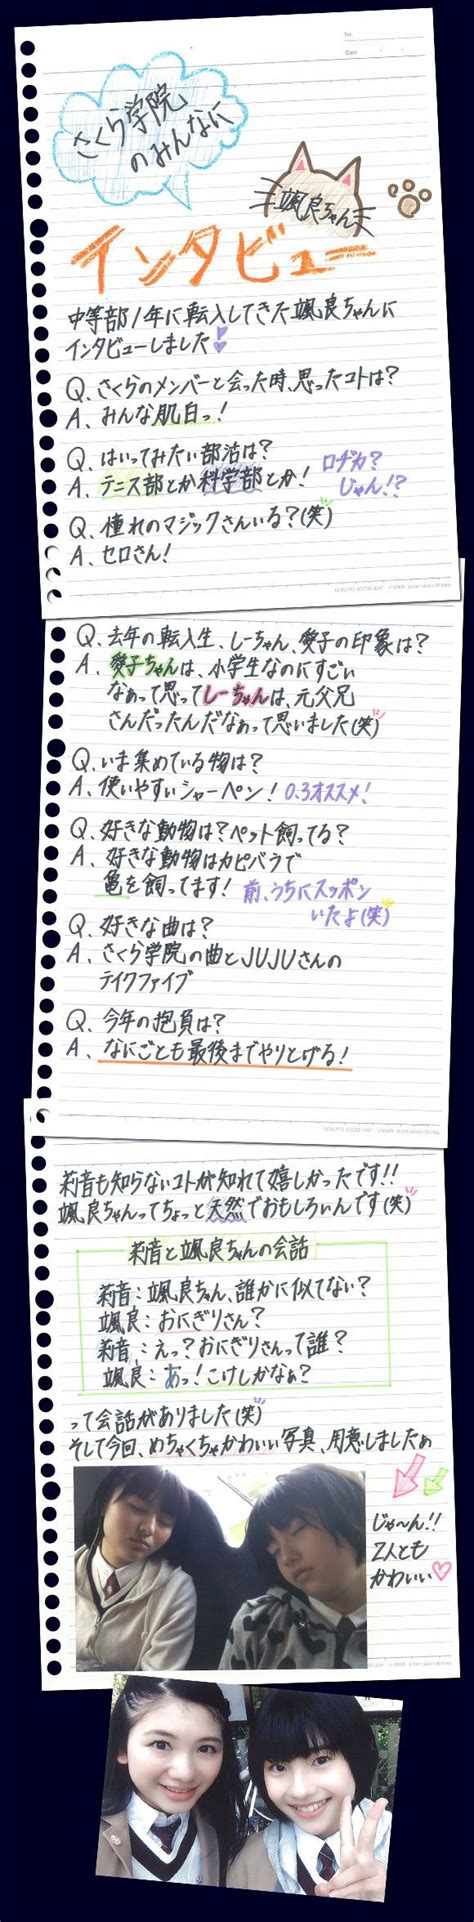 No.
Date
さくら学院
のみんなに
颯良ちゃん
インタビュー
中等部1年に転入してきた颯良ちゃんに
インタビューしました
Q、さくらのメンバーと会った時、思ったコトは?
A、みんな肌白っ!
Q、はいってみたい部活は?
A、テニス部とか科学部とか! ロヂカ?
じゃん!?
Q、憧れのマジックさんいる?(笑)
A、セロさん!
Q、去年の転入生、しーちゃん、愛子の印象は?
A、愛子ちゃんは、小学生なのにすごい
なぁって思ってしーちゃんは、元父兄
さんだったんだなぁって思いました(笑)
Q、いま集めている物は?
A、使いやすいシャーペン! 0.3オススメ!
Q、好きな動物は?ペット飼ってる?
A、好きな動物はカピバラで
亀を飼ってます! 前、うちにスッポン
いたよ(笑)
Q、好きな曲は?
A、さくら学院の曲とJUJUさんの
テイクファイブ
Q、今年の抱負は?
A、なにごとも最後までやりとげる!
莉音も知らないコトが知れて嬉しかったです!!
颯良ちゃんってちょっと天然でおもしろいんです(笑)
莉音と颯良ちゃんの会話
莉音:颯良ちゃん、誰かに似てない?
颯良:おにぎりさん?
莉音:えっ?おにぎりさんって誰?
颯良:あっ!こけしかなぁ?
って会話がありました(笑)
そして今回、めちゃくちゃかわいい写真、用意しましたぁ
じゃ~ん!!
2人とも
かわいい